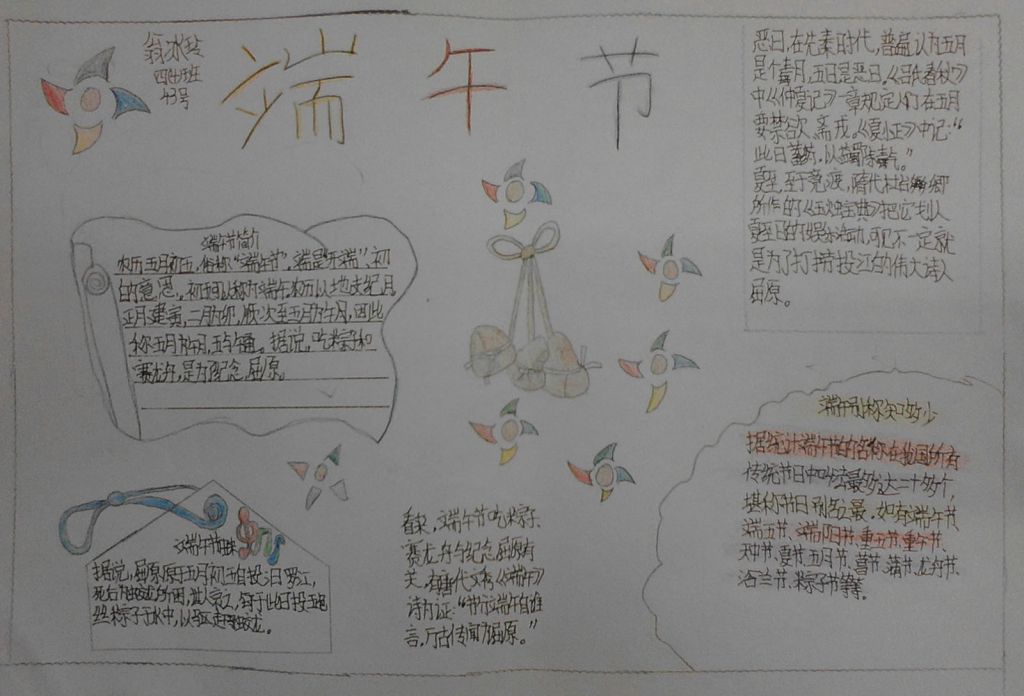 翁冰玲
四(4)班
43号
端午节
恶日,在先秦时代,普遍认为五月
是个毒月,五日是恶日。《吕氏春秋》
中《仲夏记》一章规定人们在五月
要禁欲、斋戒。《夏小正》中记:“
此日蓄药,以蠲除毒气。”
夏至,至于竞渡,隋代杜台卿
所作的《玉烛宝典》把它划入
夏至日的娱乐活动,可见不一定就
是为了打捞投江的伟大诗人
屈原。
端午节简介
农历五月初五,俗称“端午节”,端是“开端”、初
的意思。初五可以称为端午。农历以地支纪月,
正月建寅,二月为卯,顺次至五月为午月,因此
称五月为午月,五与午通。据说,吃粽子和
赛龙舟,是为了纪念屈原。
端午别称知多少
据统计端午节的名称在我国所有
传统节日中叫法最多,达二十多个,
堪称节日别名之最。如有端午节、
端五节、端阳节、重五节、重午节、
天中节、夏节、五月节、菖节、蒲节、龙舟节、
浴兰节、粽子节等等。
端午节
据说,屈原于五月初五自投汨罗江,
死后为蛟龙所困,世人哀之,每于此日投五色
丝粽子于水中,以驱蛟龙。
看来,端午节吃粽子、
赛龙舟与纪念屈原有
关,有唐代文秀《端午》
诗为证:“节分端午自谁
言,万古传闻为屈原。”